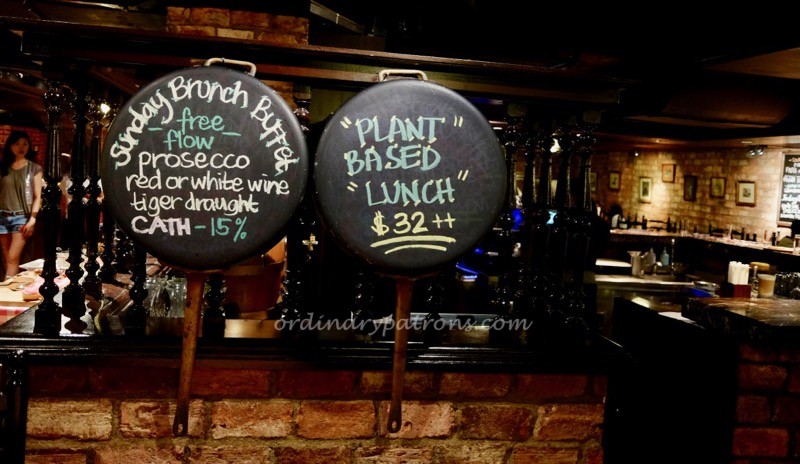 Sunday Brunch Buffet
- free -
flow
prosecco
red or white wine
tiger draught
CATH -15%
"PLANT"
BASED
"LUNCH"
$32++
ordindrypatrons.com